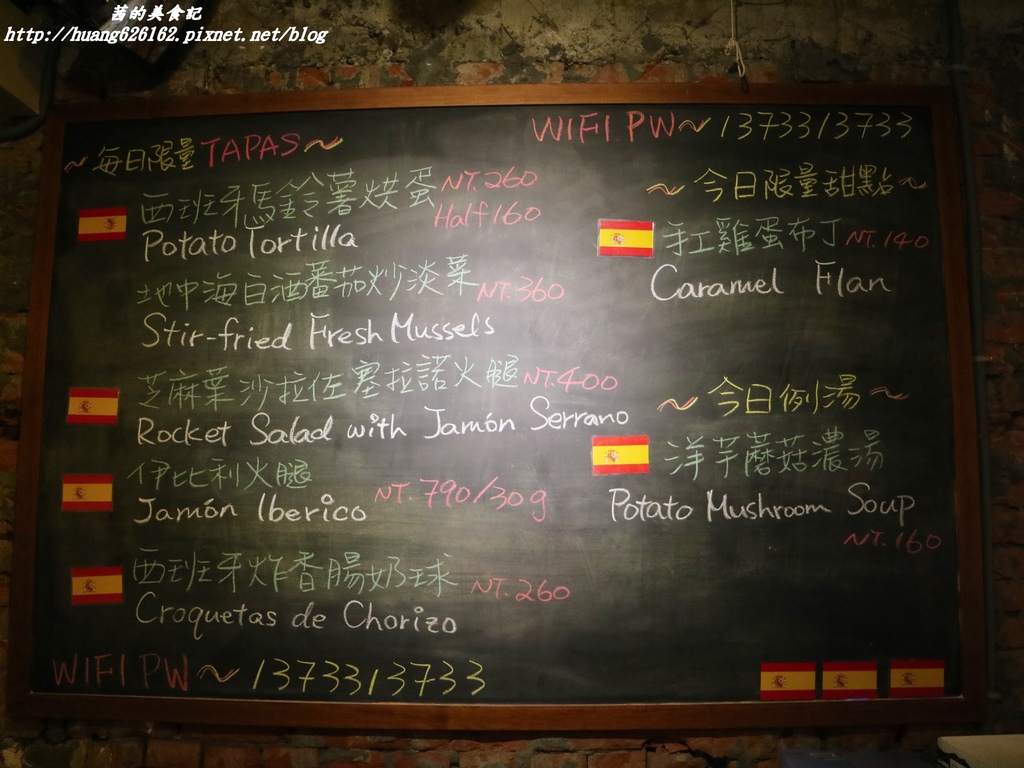 茜的美食記
http://huang626162.pixnet.net/blog
~每日限量TAPAS~
西班牙馬鈴薯烘蛋 NT.260
Half 160
Potato Tortilla
地中海白酒蕃茄炒淡菜 NT.360
Stir-fried Fresh Mussels
芝麻葉沙拉佐塞拉諾火腿 NT.400
Rocket Salad with Jamón Serrano
伊比利火腿
Jamón Iberico NT.790/30g
西班牙炸香腸奶球 NT.260
Croquetas de Chorizo
WIFI PW~1373313733
WIFI PW~1373313733
~今日限量甜點~
手工雞蛋布丁 NT.140
Caramel Flan
~今日例湯~
洋芋蘑菇濃湯
Potato Mushroom Soup
NT.160